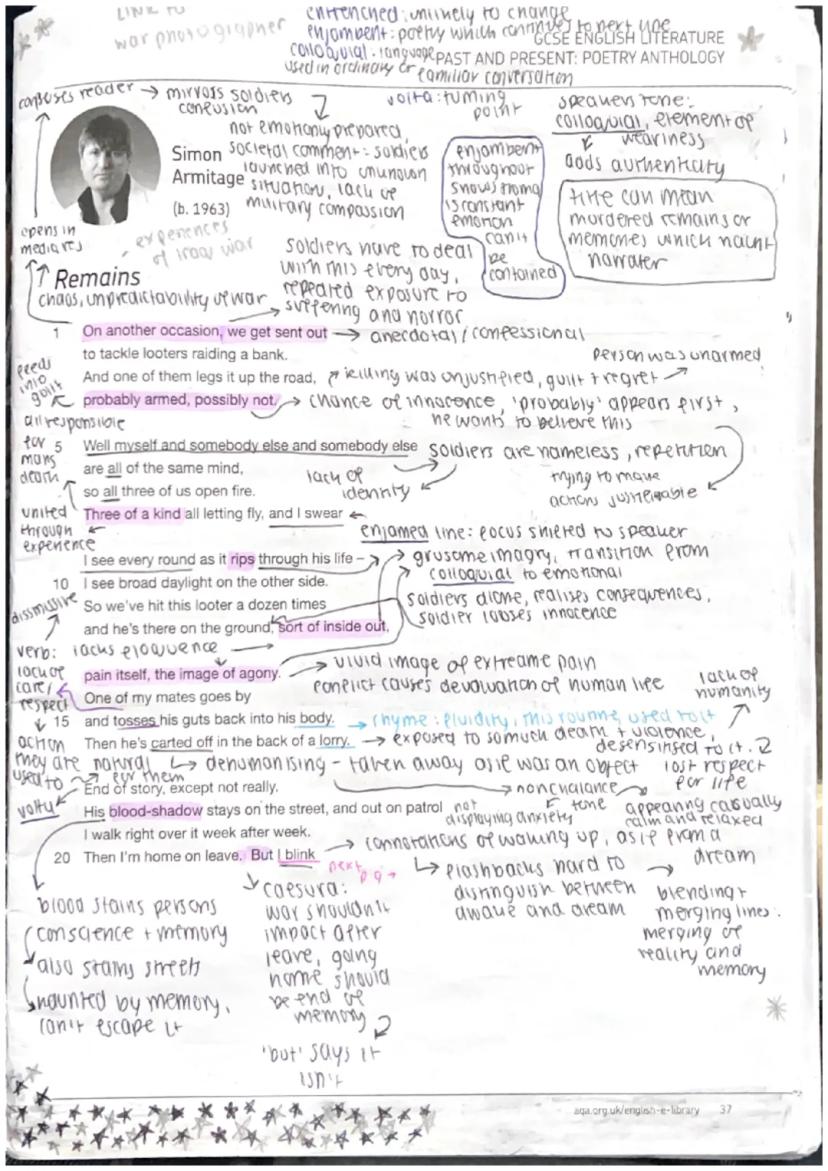 LINK TO
war photographer
entrenched: unlikely to change
enjambent: poetry which continues to next line
colloquial: language
used in ordinary or familiar conversation
GCSE ENGLISH LITERATURE
PAST AND PRESENT: POETRY ANTHOLOGY
confuses reader → mirrors soldiers
confusion
volta: turning
point
speakers tone:
colloquial, element of
weariness
adds authenticity
not emotionally prepared,
societal comment: soldiers
launched into unknown
situation, lack of
military compassion
Simon
Armitage
(b. 1963)
enjambent
throughout
shows trauma
is constant
emotion
can't
be
contained
title can mean
murdered remains or
memories which haunt
narrater
opens in
media res
experiences
of iraq war
soldiers have to deal
with this every day,
repeated exposure to
suffering and horror
Remains
chaos, unpredictability of war
1 On another occasion, we get sent out → anecdotal / confessional
to tackle looters raiding a bank.
person was unarmed
And one of them legs it up the road, killing was unjustified, guilt + regret
feeds
into
guilt
probably armed, possibly not. → chance of innocence, 'probably' appears first,
he wants to believe this
all responsible
for
mans
death
5 Well myself and somebody else and somebody else soldiers are nameless, repetition
are all of the same mind,
lack of
identity
trying to make
action justifiable
so all three of us open fire.
united
through
experience
Three of a kind all letting fly, and I swear
enjamed line: focus shifted to speaker
I see every round as it rips through his life – → grusome imagry, transition from
colloquial to emotional
10 I see broad daylight on the other side.
So we've hit this looter a dozen times
soldiers alone, realises consequences,
soldier looses innocence
dismissive
and he's there on the ground, sort of inside out,
verb: lacks eloquence
pain itself, the image of agony. → vivid image of extreame pain
conflict causes devaluation of human life
lack of
care/
respect
lack of
humanity
One of my mates goes by
15 and tosses his guts back into his body. → rhyme: fluidity, this routine, used to it
Then he's carted off in the back of a lorry. → exposed to so much death + violence,
desensitised to it.
action
they are
used to
natural
for them
dehumanising - taken away as if was an object
lost respect
for life
End of story, except not really.
nonchalance
tone
appearing casually
calm and relaxed
not
displaying anxiety
volta
His blood-shadow stays on the street, and out on patrol
I walk right over it week after week.
20 Then I'm home on leave. But I blink
next
pg →
connotations of waking up, as if from a
dream
flashbacks hard to
distinguish between
awake and dream
blending +
merging lines:
merging of
reality and
memory
blood stains persons
conscience + memory
also stains streets
haunted by memory,
can't escape it
caesura:
war shouldn't
impact after
leave, going
home should
be end of
memory
'but' says it
isn't
aqa.org.uk/english-e-library 37